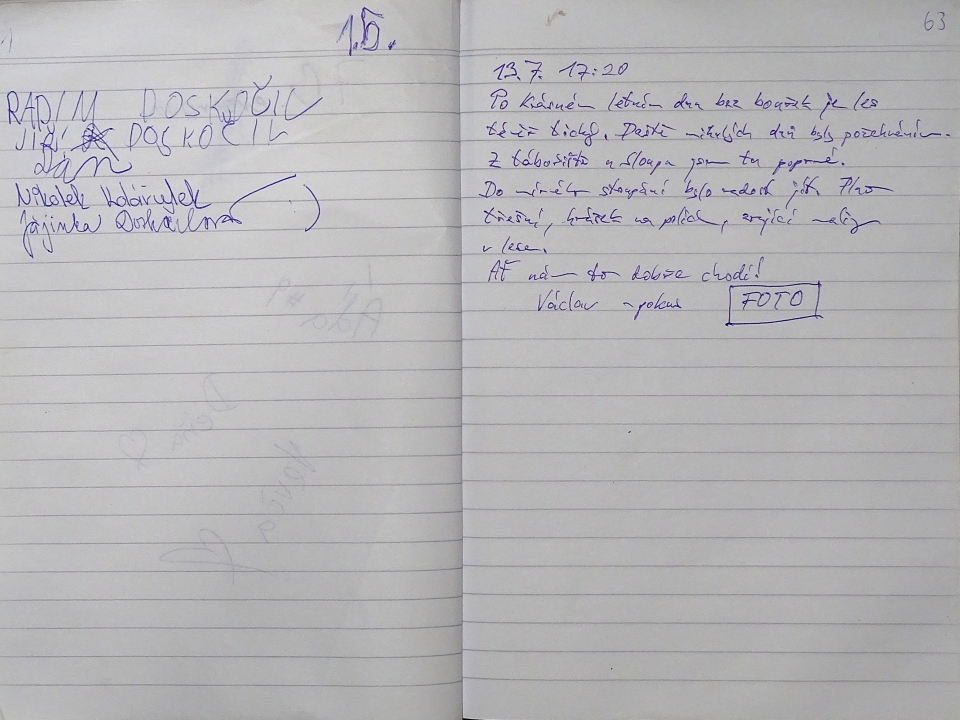 1.5.
RADIM DOSKOČIL
JIŘÍ DOSKOČIL
Dan
Nikolek Kolářulek
Jájinka Doskočilová :)
63
13.7. 17:20
Po krásném letním dnu bez bouřek je les
téměř tichý. Deště minulých dnů byly požehnáním.
Z tábořiště u Sloupa jsem tu poprvé.
Do mírného stoupání bylo radost jít. Plno
třešní, hrášek na polích, zrající maliny
v lese.
Ať nám to dobře chodí!
Václav - FOTO